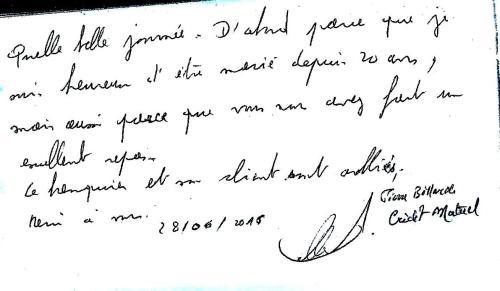 Quelle belle journée. D'abord parce que je
suis heureux d'être marié depuis 20 ans,
mais aussi parce que vous avez fait un
excellent repas.
Le banquier et son client sont
Merci à 
28/06/2016
Crédit Mutuel